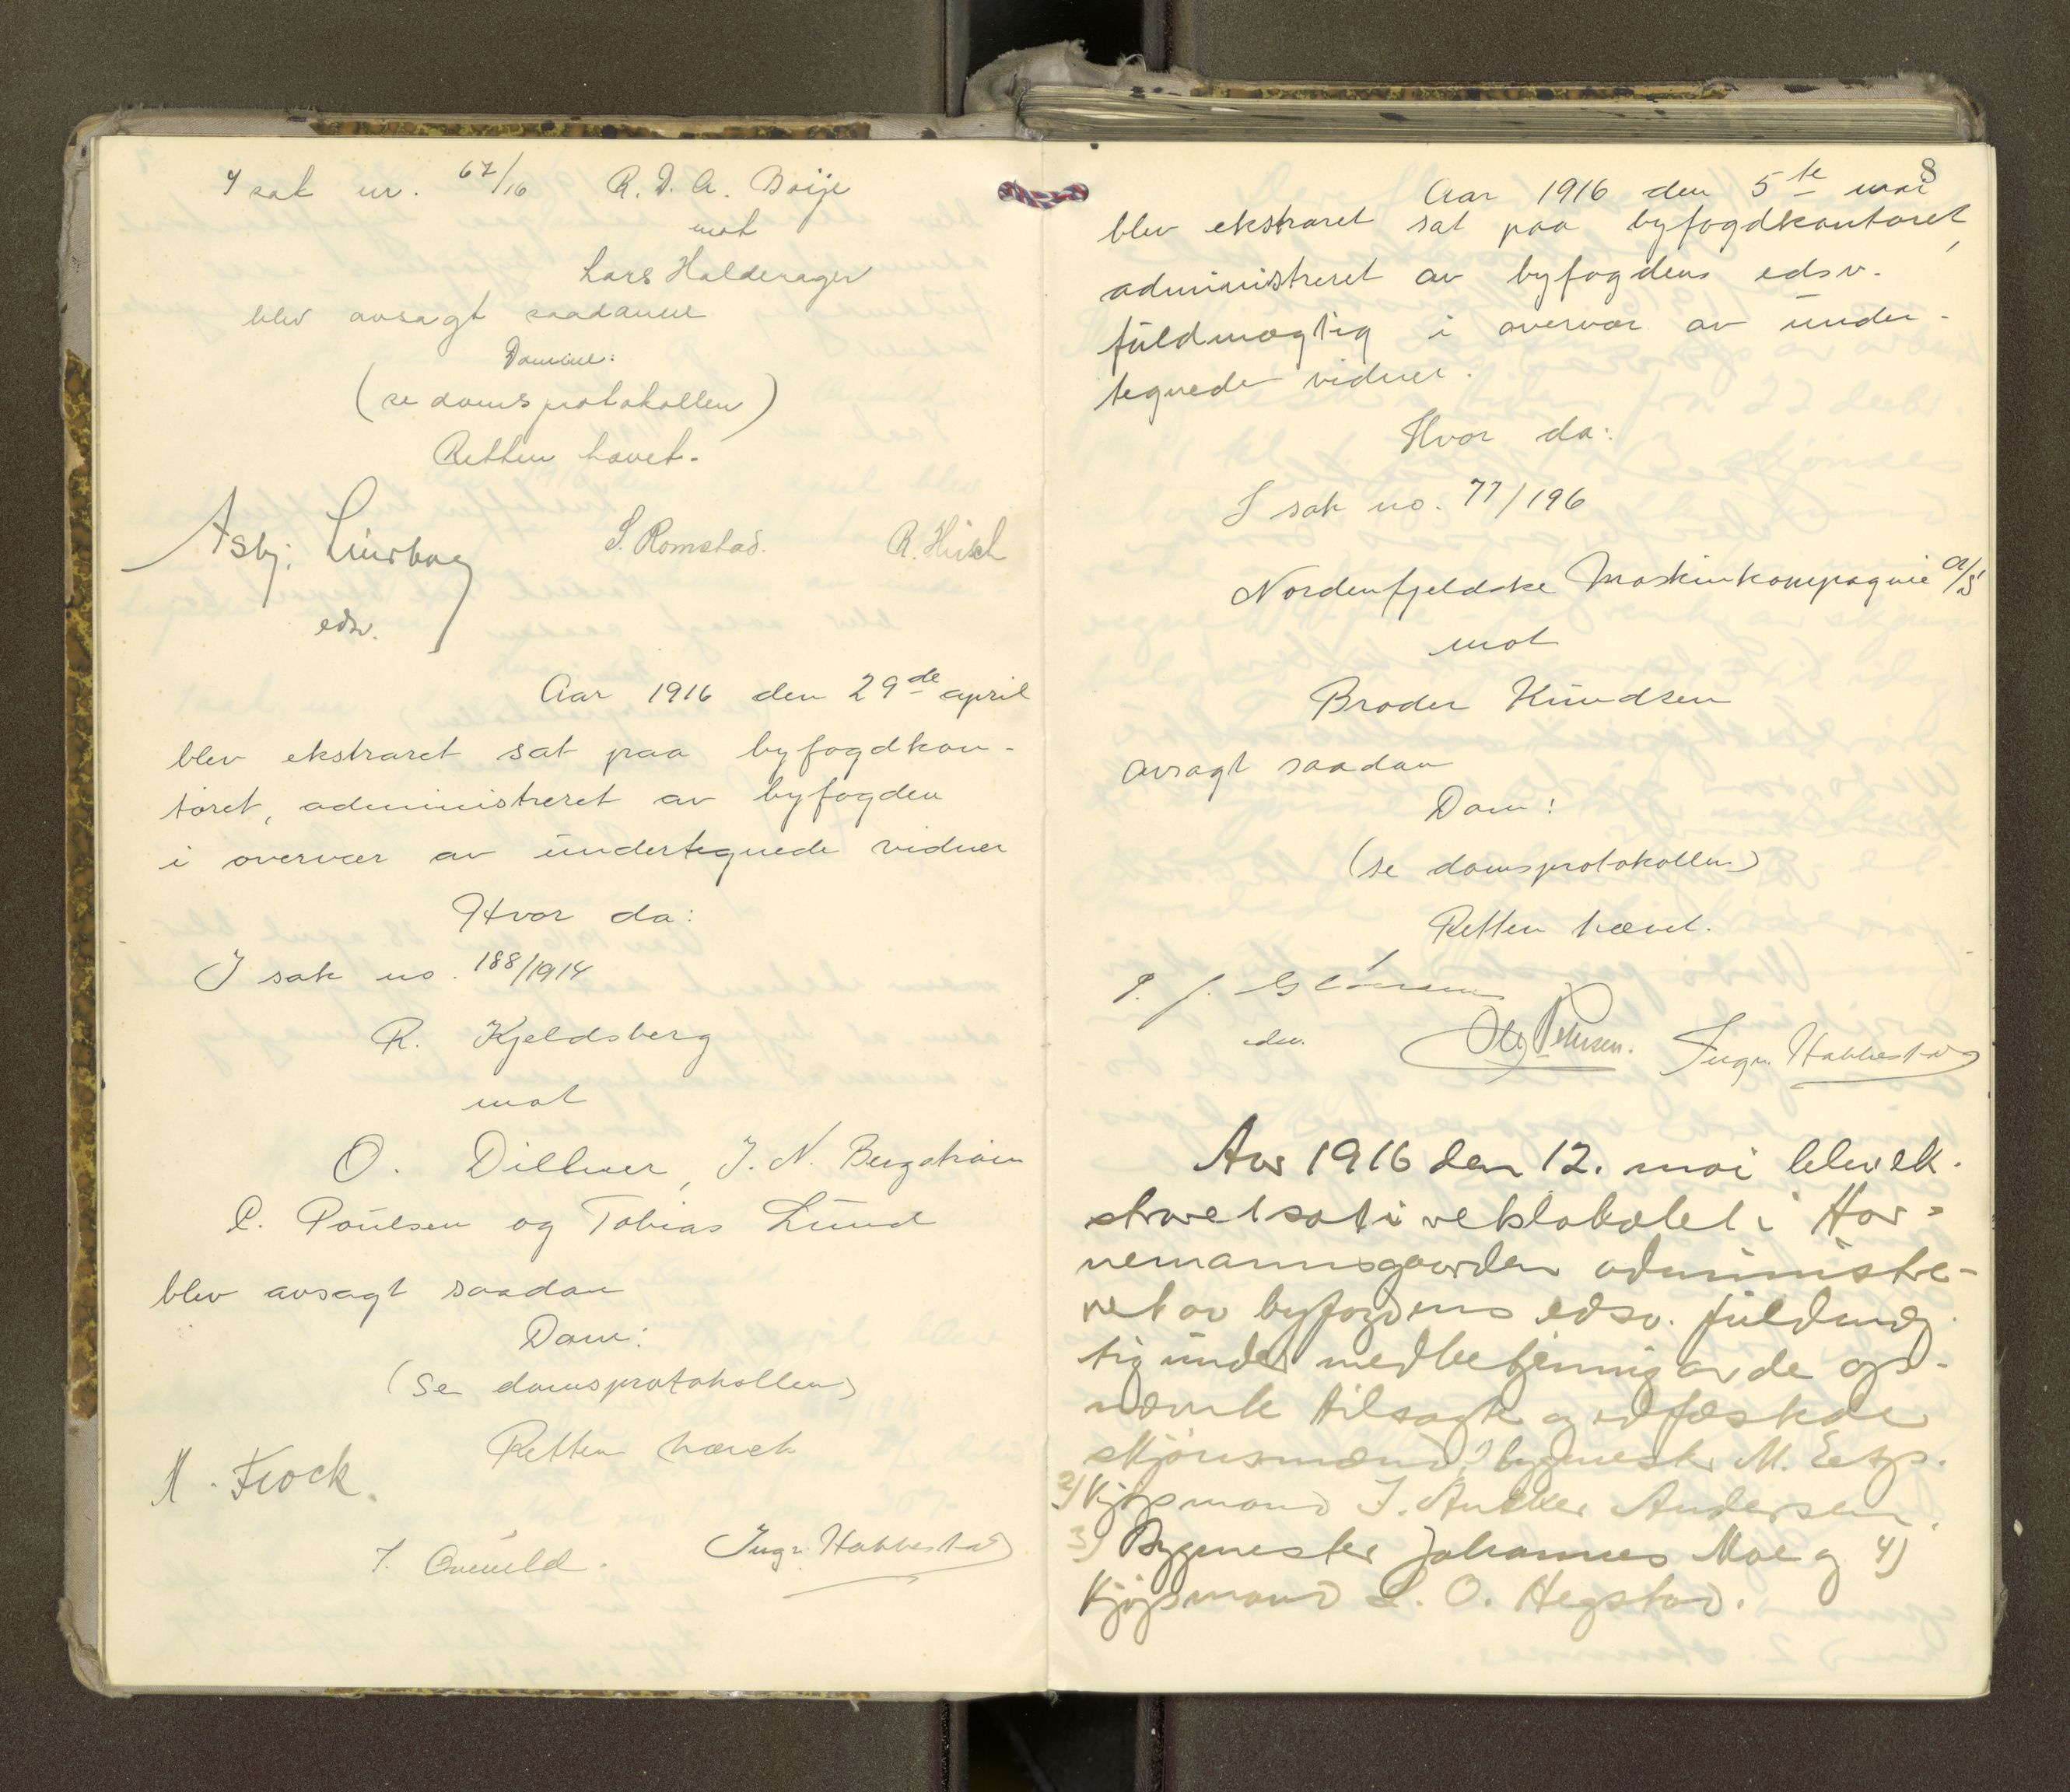 I sak nr. 67/16 R. D. A. Boije
mot
Lars Halderager
blev avsagt saadanne
Domme:
(se domsprotokollen)
Retten hævet.
Asbj:
S. Romstad. R. Hirsch
edsv.
Aar 1916 den 29de april
blev ekstraret sat paa byfogdkon-
toret, administreret av byfogden
i overvær av undertegnede vidner
Hvor da:
I sak no. 188/1914
R. Kjeldsberg
mot
O. Dillner, J. N. Bergstrøm
P. Poulsen og Tobias Lund
blev avsagt saadan
Dom:
(se domsprotokollen)
Retten hævet
M. Frock.
Ingv. Habbestad
8
Aar 1916 den 5te mai
blev ekstraret sat paa byfogdkontoret,
administreret av byfogdens edsv.
fuldmægtig i overvær av under-
tegnede vidner.
Hvor da:
I sak no. 77/196
Nordenfjeldske Maskinkompagnie A/S
mot
Brødr Knudsen
avsagt saadan
Dom:
(se domsprotokollen)
Retten hævet.
edsv. Ole Petersen. Ingv. Habbestad
Aar 1916 den 12. mai blev ek-
straret sat i retslokalet i Hor-
nemannsgaarden administre-
ret av byfogdens edsv. fuldmæg-
tig under medbetjening av de op-
nævnte tilsagte og edfæstede
skjønsmænd: 1) bygmester M.
2) Kjøpmand J. Andersen.
3) Bygmester Johannes Moe og 4)
Kjøpmand L. O. Hegstad.